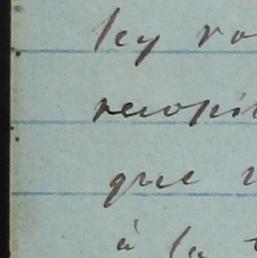 ley vo
recopil
que
à la